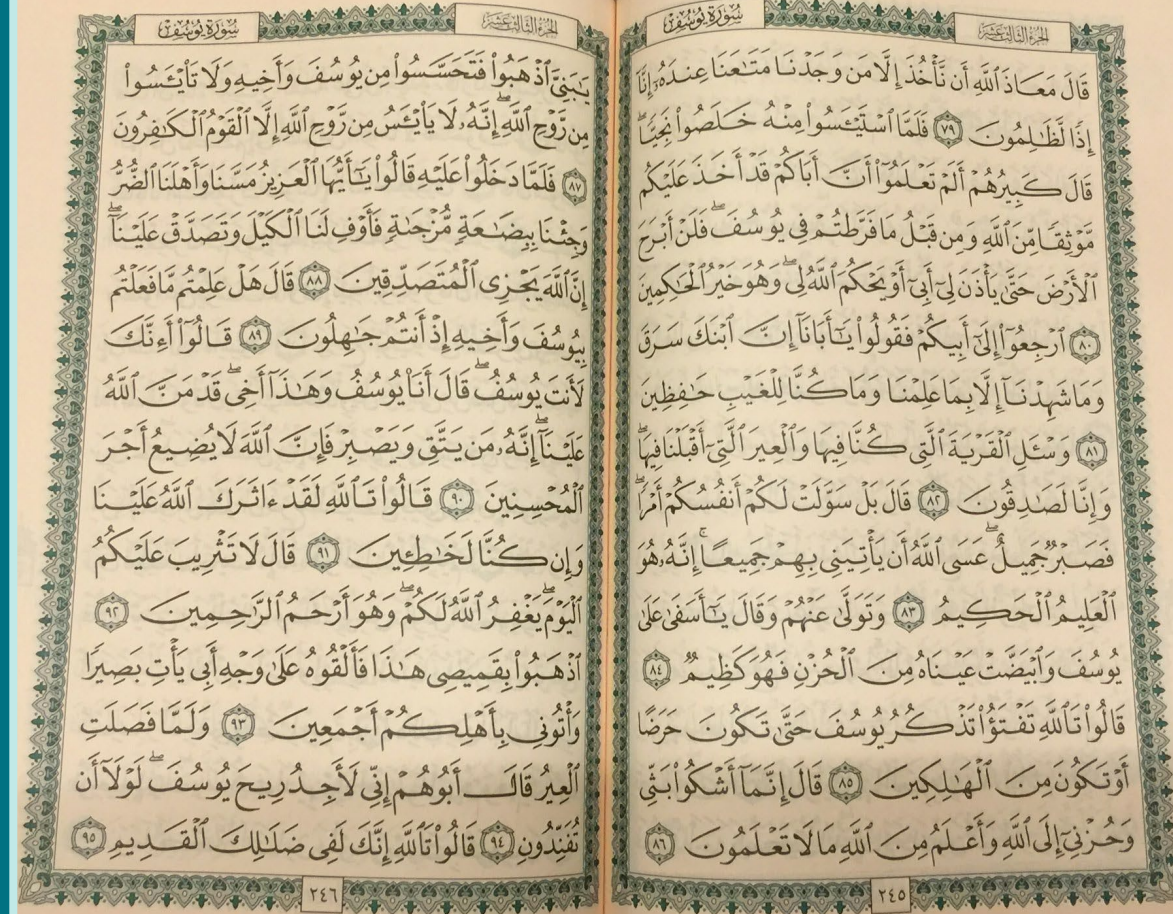 سورة يوسف
الجزء الثالث عشر
قَالَ مَعَاذَ ٱللَّهِ أَن نَّأْخُذَ إِلَّا مَن وَجَدْنَا مَتَٰعَنَا عِندَهُۥٓ إِنَّآ
إِذًا لَّظَٰلِمُونَ ٧٩ فَلَمَّا ٱسْتَيْـَٔسُوا۟ مِنْهُ خَلَصُوا۟ نَجِيًّا ۖ
قَالَ كَبِيرُهُمْ أَلَمْ تَعْلَمُوٓا۟ أَنَّ أَبَاكُمْ قَدْ أَخَذَ عَلَيْكُم
مَّوْثِقًا مِّنَ ٱللَّهِ وَمِن قَبْلُ مَا فَرَّطتُمْ فِى يُوسُفَ ۖ فَلَنْ أَبْرَحَ
ٱلْأَرْضَ حَتَّىٰ يَأْذَنَ لِىٓ أَبِىٓ أَوْ يَحْكُمَ ٱللَّهُ لِى ۖ وَهُوَ خَيْرُ ٱلْحَٰكِمِينَ
٨٠ ٱرْجِعُوٓا۟ إِلَىٰٓ أَبِيكُمْ فَقُولُوا۟ يَٰٓأَبَانَآ إِنَّ ٱبْنَكَ سَرَقَ
وَمَا شَهِدْنَآ إِلَّا بِمَا عَلِمْنَا وَمَا كُنَّا لِلْغَيْبِ حَٰفِظِينَ
٨١ وَسْـَٔلِ ٱلْقَرْيَةَ ٱلَّتِى كُنَّا فِيهَا وَٱلْعِيرَ ٱلَّتِىٓ أَقْبَلْنَا فِيهَا ۖ
وَإِنَّا لَصَٰدِقُونَ ٨٢ قَالَ بَلْ سَوَّلَتْ لَكُمْ أَنفُسُكُمْ أَمْرًا ۖ
فَصَبْرٌ جَمِيلٌ ۖ عَسَى ٱللَّهُ أَن يَأْتِيَنِى بِهِمْ جَمِيعًا ۚ إِنَّهُۥ هُوَ
ٱلْعَلِيمُ ٱلْحَكِيمُ ٨٣ وَتَوَلَّىٰ عَنْهُمْ وَقَالَ يَٰٓأَسَفَىٰ عَلَىٰ
يُوسُفَ وَٱبْيَضَّتْ عَيْنَاهُ مِنَ ٱلْحُزْنِ فَهُوَ كَظِيمٌ ٨٤
قَالُوا۟ تَٱللَّهِ تَفْتَؤُا۟ تَذْكُرُ يُوسُفَ حَتَّىٰ تَكُونَ حَرَضًا
أَوْ تَكُونَ مِنَ ٱلْهَٰلِكِينَ ٨٥ قَالَ إِنَّمَآ أَشْكُوا۟ بَثِّى
وَحُزْنِىٓ إِلَى ٱللَّهِ وَأَعْلَمُ مِنَ ٱللَّهِ مَا لَا تَعْلَمُونَ ٨٦
٢٤٥
سورة يوسف
الجزء الثالث عشر
يَٰبَنِىَّ ٱذْهَبُوا۟ فَتَحَسَّسُوا۟ مِن يُوسُفَ وَأَخِيهِ وَلَا تَا۟يْـَٔسُوا۟
مِن رَّوْحِ ٱللَّهِ ۖ إِنَّهُۥ لَا يَا۟يْـَٔسُ مِن رَّوْحِ ٱللَّهِ إِلَّا ٱلْقَوْمُ ٱلْكَٰفِرُونَ
٨٧ فَلَمَّا دَخَلُوا۟ عَلَيْهِ قَالُوا۟ يَٰٓأَيُّهَا ٱلْعَزِيزُ مَسَّنَا وَأَهْلَنَا ٱلضُّرُّ
وَجِئْنَا بِبِضَٰعَةٍ مُّزْجَىٰةٍ فَأَوْفِ لَنَا ٱلْكَيْلَ وَتَصَدَّقْ عَلَيْنَآ ۖ
إِنَّ ٱللَّهَ يَجْزِى ٱلْمُتَصَدِّقِينَ ٨٨ قَالَ هَلْ عَلِمْتُم مَّا فَعَلْتُم
بِيُوسُفَ وَأَخِيهِ إِذْ أَنتُمْ جَٰهِلُونَ ٨٩ قَالُوٓا۟ أَءِنَّكَ
لَأَنتَ يُوسُفُ ۖ قَالَ أَنَا۠ يُوسُفُ وَهَٰذَآ أَخِى ۖ قَدْ مَنَّ ٱللَّهُ
عَلَيْنَآ ۖ إِنَّهُۥ مَن يَتَّقِ وَيَصْبِرْ فَإِنَّ ٱللَّهَ لَا يُضِيعُ أَجْرَ
ٱلْمُحْسِنِينَ ٩٠ قَالُوا۟ تَٱللَّهِ لَقَدْ ءَاثَرَكَ ٱللَّهُ عَلَيْنَا
وَإِن كُنَّا لَخَٰطِـِٔينَ ٩١ قَالَ لَا تَثْرِيبَ عَلَيْكُمُ
ٱلْيَوْمَ ۖ يَغْفِرُ ٱللَّهُ لَكُمْ ۖ وَهُوَ أَرْحَمُ ٱلرَّٰحِمِينَ ٩٢
ٱذْهَبُوا۟ بِقَمِيصِى هَٰذَا فَأَلْقُوهُ عَلَىٰ وَجْهِ أَبِى يَأْتِ بَصِيرًا
وَأْتُونِى بِأَهْلِكُمْ أَجْمَعِينَ ٩٣ وَلَمَّا فَصَلَتِ
ٱلْعِيرُ قَالَ أَبُوهُمْ إِنِّى لَأَجِدُ رِيحَ يُوسُفَ ۖ لَوْلَآ أَن
تُفَنِّدُونِ ٩٤ قَالُوا۟ تَٱللَّهِ إِنَّكَ لَفِى ضَلَٰلِكَ ٱلْقَدِيمِ ٩٥
٢٤٦